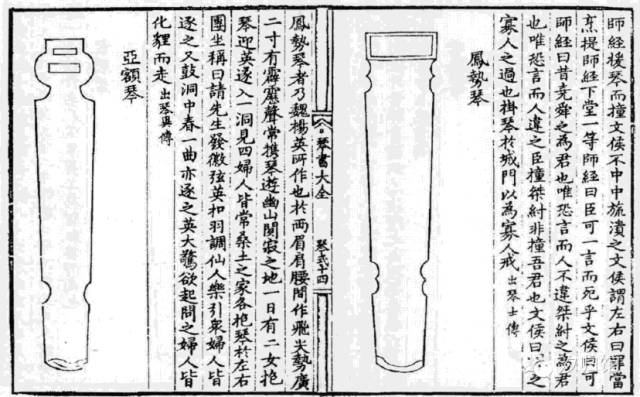 師經援琴而撞文侯不中中旒潰之文侯謂左右曰罪當
烹提師經下堂一等師經曰臣可一言而死乎文侯曰可
師經曰昔堯舜之為君也唯恐言而人不違桀紂之為君
也唯恐言而人違之臣撞桀紂非撞吾君也文侯曰之
寡人之過也掛琴於城門以為寡人戒 出琴士傳
鳳勢琴
琴書大全
琴式十四
鳳勢琴者乃魏楊英所作也於兩眉肩腰間作飛尖勢廣
二寸有霹靂聲常携琴遊幽山閴寂之地一日有二女抱
琴迎英遂入一洞見四婦人皆常桑土之家各抱琴於左右
團坐稱曰請先生發徽弦英扣羽調仙人樂引衆婦人皆
逐之又鼓洞中春一曲亦逐之英大驚欲起問之婦人皆
化貍而走 出琴異傳
亞額琴